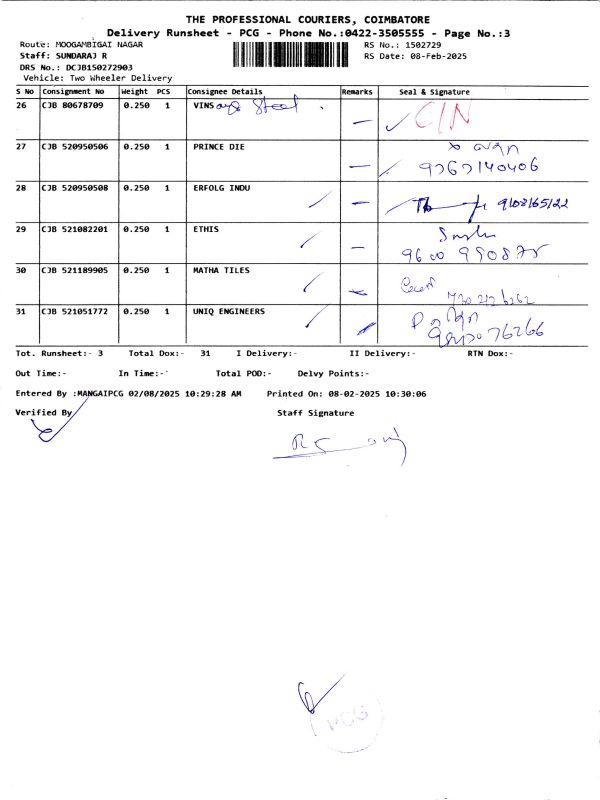 THE PROFESSIONAL COURIERS, COIMBATORE
Delivery Runsheet - PCG - Phone No.:0422-3505555 - Page No.:3
Route: MOOGAMBIGAI NAGAR RS No.: 1502729
Staff: SUNDARAJ R RS Date: 08-Feb-2025
DRS No.: DCJB150272903
Vehicle: Two Wheeler Delivery
S No Consignment No Weight PCS Consignee Details Remarks Seal & Signature
26 CJB 80678709 0.250 1 VINS Steel
27 CJB 520950506 0.250 1 PRINCE DIE
28 CJB 520950508 0.250 1 ERFOLG INDU
29 CJB 521082201 0.250 1 ETHIS
30 CJB 521189905 0.250 1 MATHA TILES
31 CJB 521051772 0.250 1 UNIQ ENGINEERS
Tot. Runsheet:- 3 Total Dox:- 31 I Delivery:- II Delivery:- RTN Dox:-
Out Time:- In Time:- Total POD:- Delvy Points:-
Entered By :MANGAIPCG 02/08/2025 10:29:28 AM Printed On: 08-02-2025 10:30:06
Verified By Staff Signature
PCG